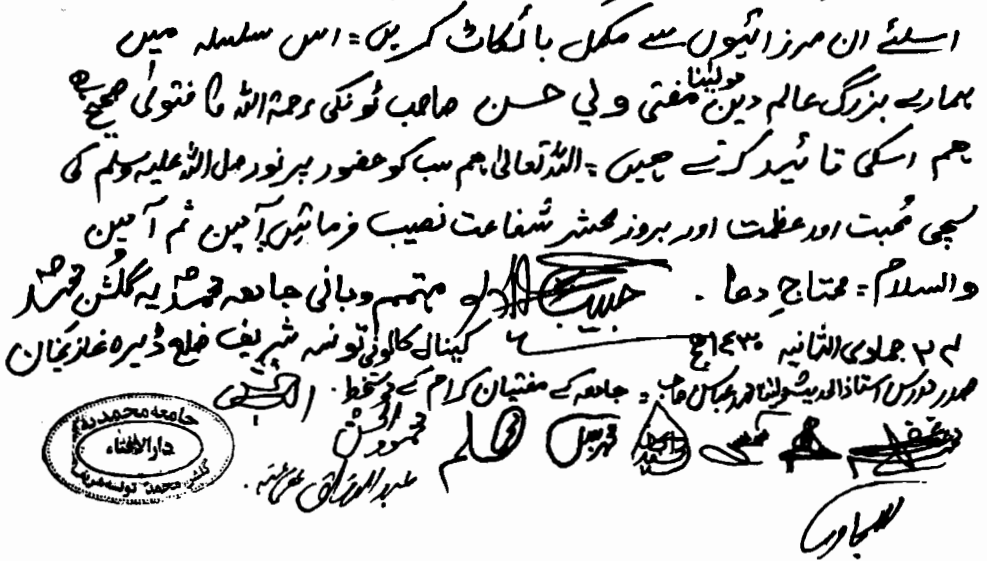 اسلئے ان مرزائیوں سے مکمل بائکاٹ کریں = اس سلسلہ میں
ہمارے بزرگ عالم دین مولٰینا مفتی ولی حسن صاحب ٹونکی رحمۃ اللہ کا فتویٰ صحیح ہے
ہم اسکی تائید کرتے ہیں = اللہ تعالیٰ ہم سب کو حضور پر نور صلی اللہ علیہ وسلم کی
سچی مُحبت اور عظمت اور بروز محشر شفاعت نصیب فرمائیں آمین ثم آمین
والسلام = محتاج دعا . حبیب مہتمم و بانی جامعہ محمدیہ گلشن محمد
۲۳ جمادی الثانیہ ۱۴۳۰ھ کینال کالونی تونسہ شریف ضلع ڈیرہ غازیخان
صدر مدرس استاذ الحدیث مولٰنا محمد عباس صاحب = جامعہ کے مفتیان کرام کے دستخط .
محمود الحسن
عبد الرزاق عفی عنہ .
جامعہ محمدیہ
دار الافتاء
گلشن محمد تونسہ شریف